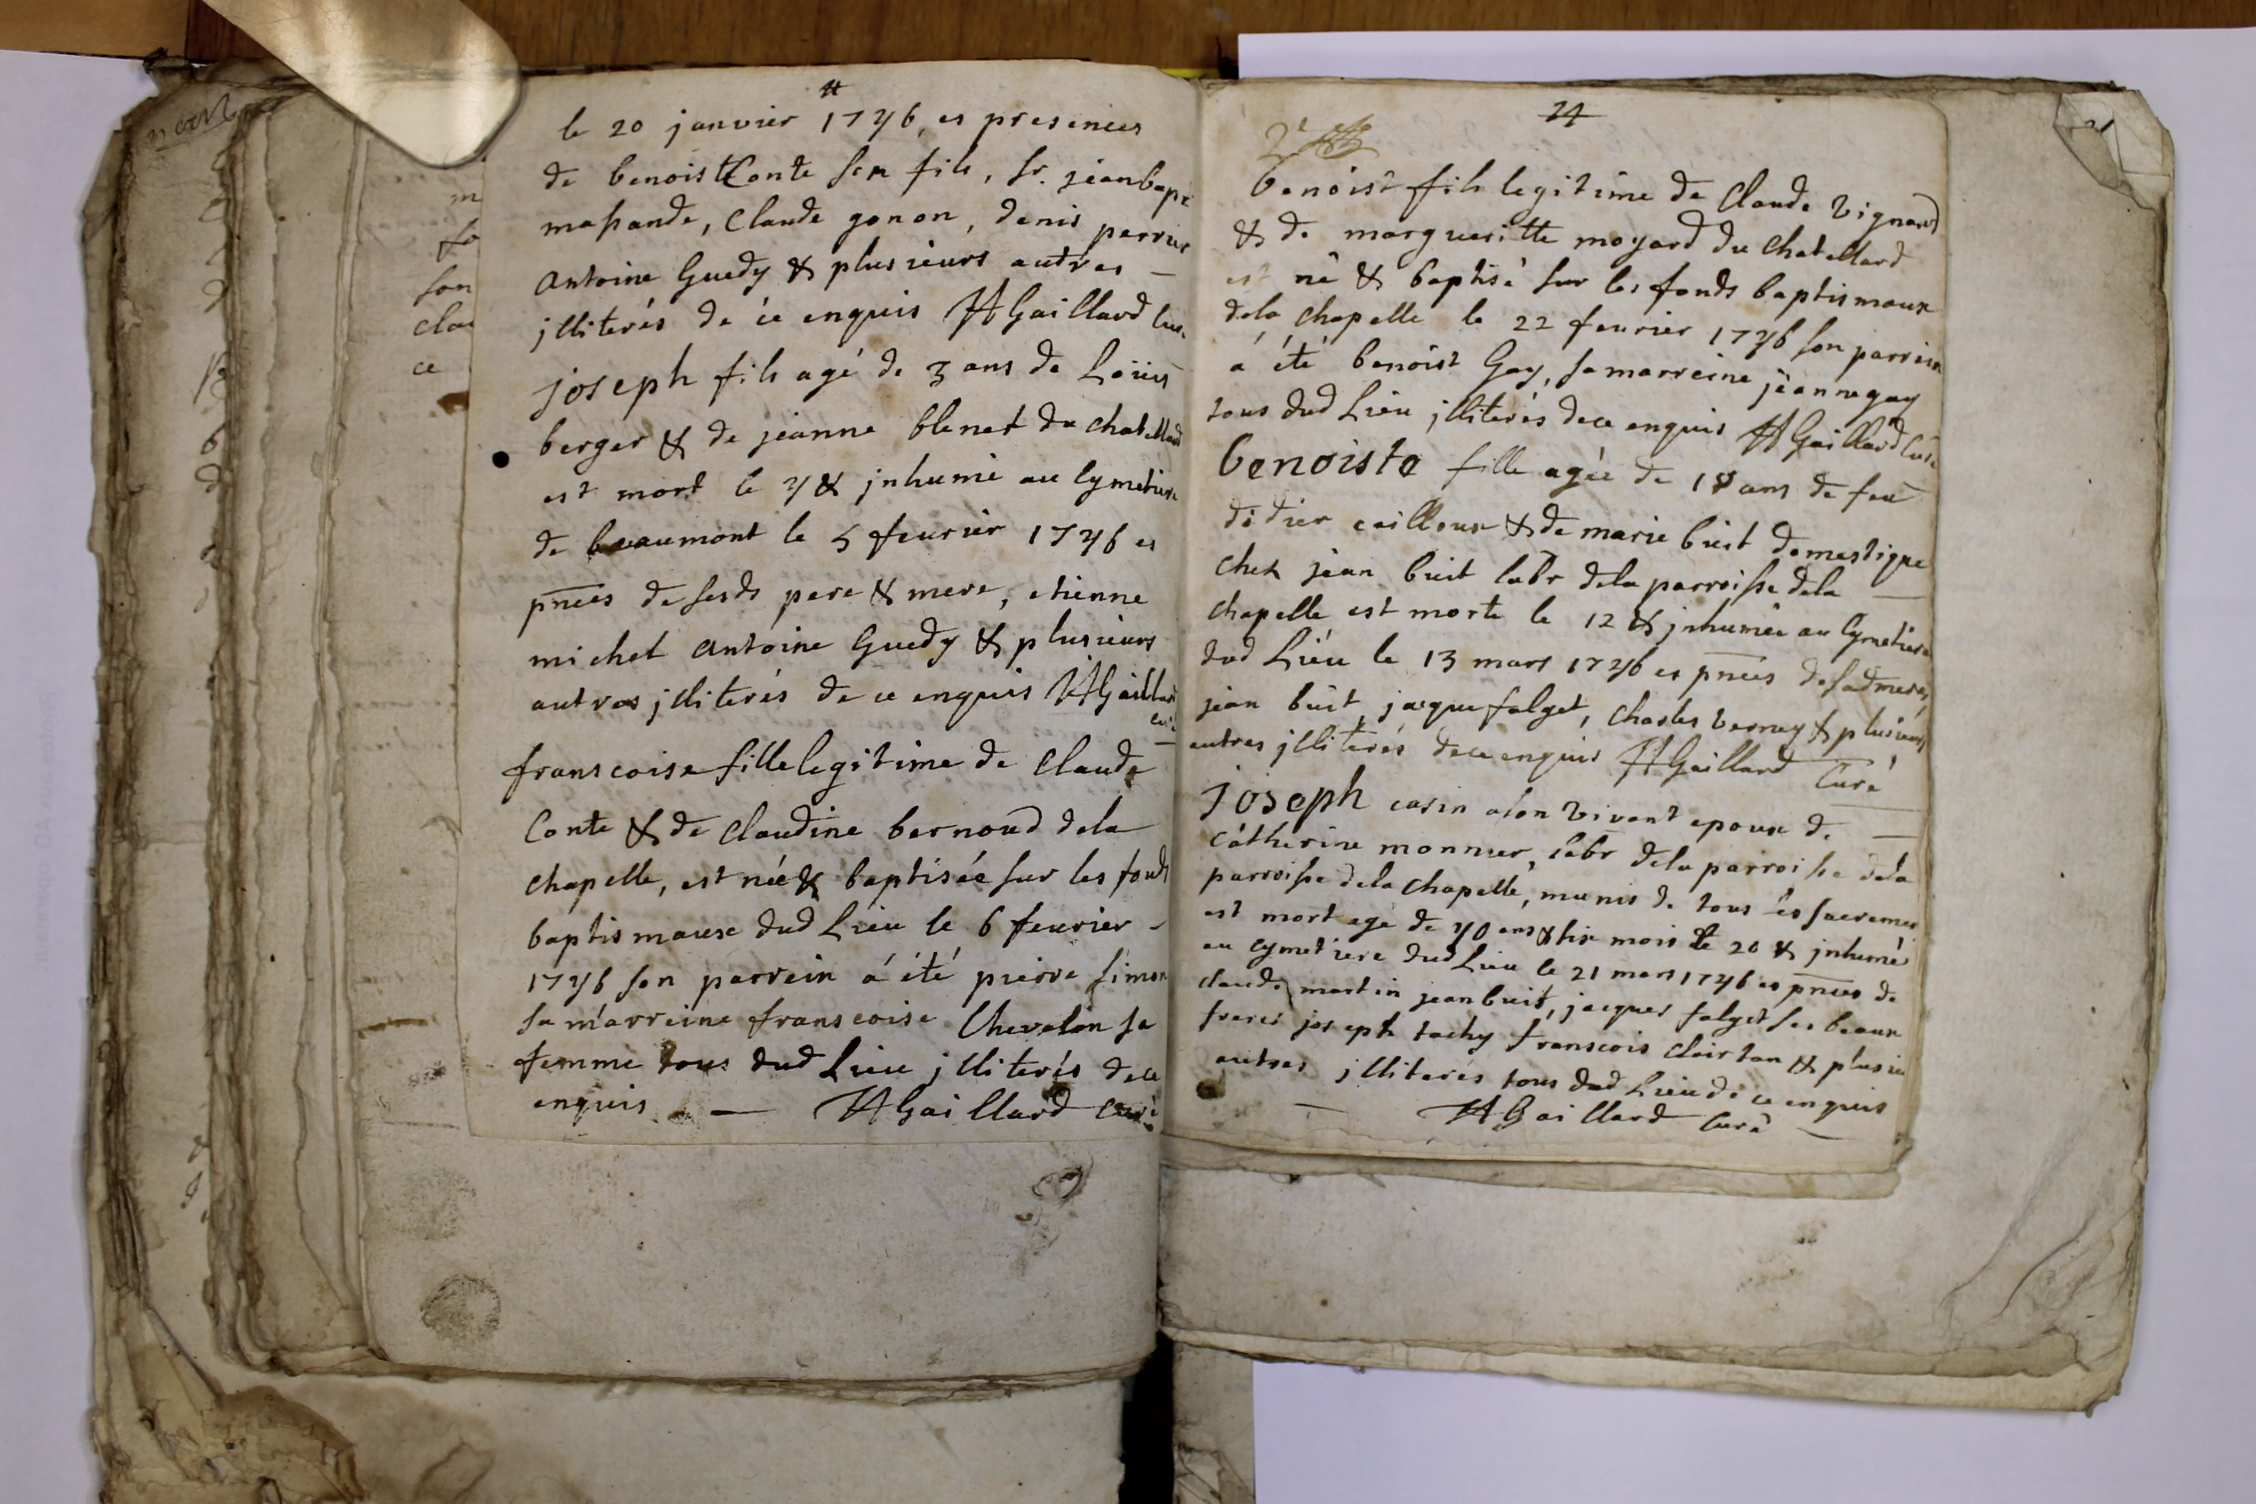 le 20 janvier 1746, es presences
de benoist Conte son fils, sr. jean bapt
massande, Claude gonon, denis perrier
antoine Guedy & plus ieurs autres —
jlliterés de ce enquis JAGaillard Cur.
joseph fils agé de 3 ans de Loüis
berger & de jeanne blenet du chatellard
est mort le 4 & jnhumé au Cymetiere
de beaumont le 5 feurier 1746 es
pnces de sesds pere & mere, etienne
michel antoine Guedy & plusieurs
autres jlliterés de ce enquis JAGaillard
curé
franscoise fille legitime de Claude
Conte & de Claudine bernoud dela
chapelle, est née & baptisée sur les fonds
baptismaux dud Lieu le 6 feurier -
1746 son parrein á été pierre simon
sa marreine franscoise Chevalon sa
femme tous dud Lieu jlliterés de ce
enquis — JAGaillard curé
m
fa
son
clau
ce
benoist fils legitime de Claude vignard
& de margueritte moyard du chatellard
est né & baptisé sur les fonds baptismaux
dela chapelle le 22 feurier 1746 son parrein
á été benoist Gay, sa marreine jeanne gay
tous dud Lieu jlliterés de ce enquis JAGaillard Curé
benoiste fille agée de 18 ans de feu
didier cailloux & de marie buit domestique
chez jean buit labr dela parroisse dela —
chapelle est morte le 12 & jnhumée au Cymetiere
dud Lieu le 13 mars 1746 es pnces de sad mere,
jean buit, jacque falget, charles verney & plusieurs
autres jlliterés de ce enquis JAGaillard Curé
joseph carin alon vivant epoux de —
Catherine monnier, labr dela parroisse dela
parroisse dela chapelle, munis de tous les sacremens
est mort agé de 40 ans & six mois le 20 & jnhumé
au cymetiere dud Lieu le 21 mars 1746 es pnces de
claude martin jean buit, jacques falget ses beaux
freres joseph tachy franscois clairtan & plusieurs
autres jlliterés tous dud Lieu de ce enquis
— JAGaillard Curé —